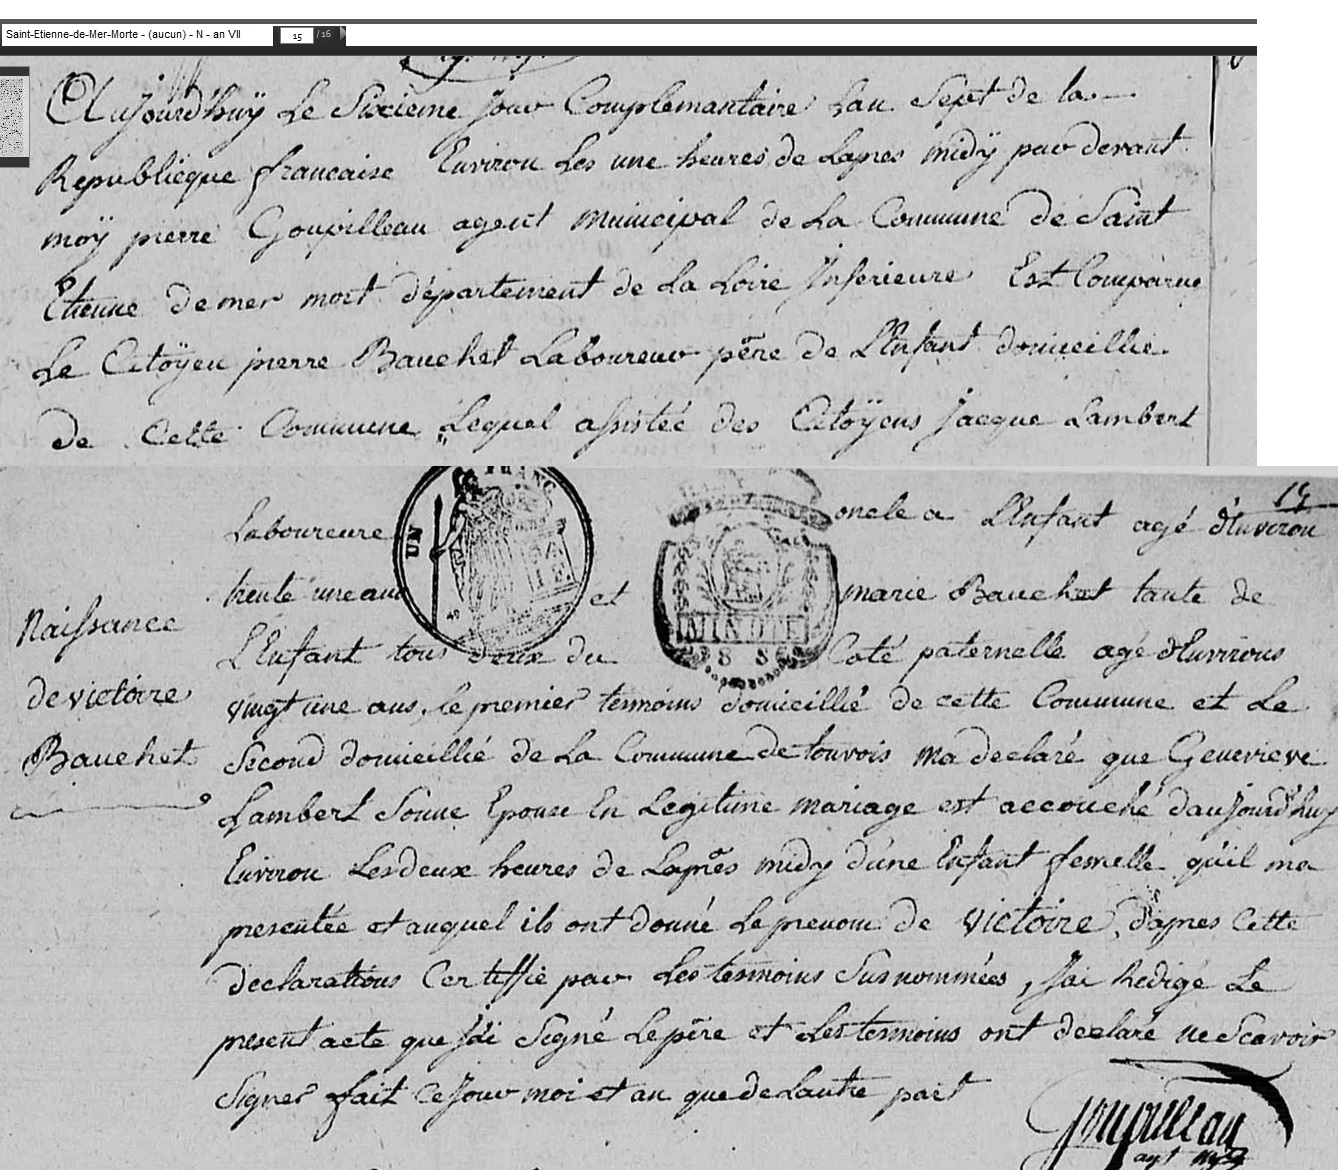 Saint-Etienne-de-Mer-Morte - (aucun) - N - an VII 15 / 16
Aujourd'huÿ Le Sixieme jour Complemantaire Lan Sept de la
Republicque francaise Environ Les une heures de Lapres midÿ par devant
moÿ pierre Goupilleau agent municipal de La Commune de Saint
Etienne de mer mort département de La Loire Inferieure Est Comparue
Le Citoÿen pierre Bauchet Laboureur père de LEnfant domicellie
de Cette Commune Lequel assistée des Citoÿens Jacque Lambert
15
Laboureure oncle a LEnfant agé dEnviron
trente une ans et marie Bauchet tante de
LEnfant tous deux du Coté paternelle agé dEnvirons
vingt une ans, Le premier temoins domicellié de cette Commune et Le
Second domicellié de La Commune de touvois ma declaré que Genevieve
Lambert Sonne Epouse En Legitime mariage est accouché daujourd'huy
Environ Les deux heures de Laprès midy d'une Enfant femelle qu'il ma
presentée et auquel ils ont donné Le prenom de victoire, dapres Cette
declarations Certiffié par Les temoins Susnommées, Jai Redigé Le
present acte que Jai Signé Le père et Les temoins ont declaré ne Scavoir
Signer fait Ce Jour moi et an que de Lautre part
Naissance
de victoire
Bauchet
UN
FRANC
MINUTE
8 8
Goupilleau
agt